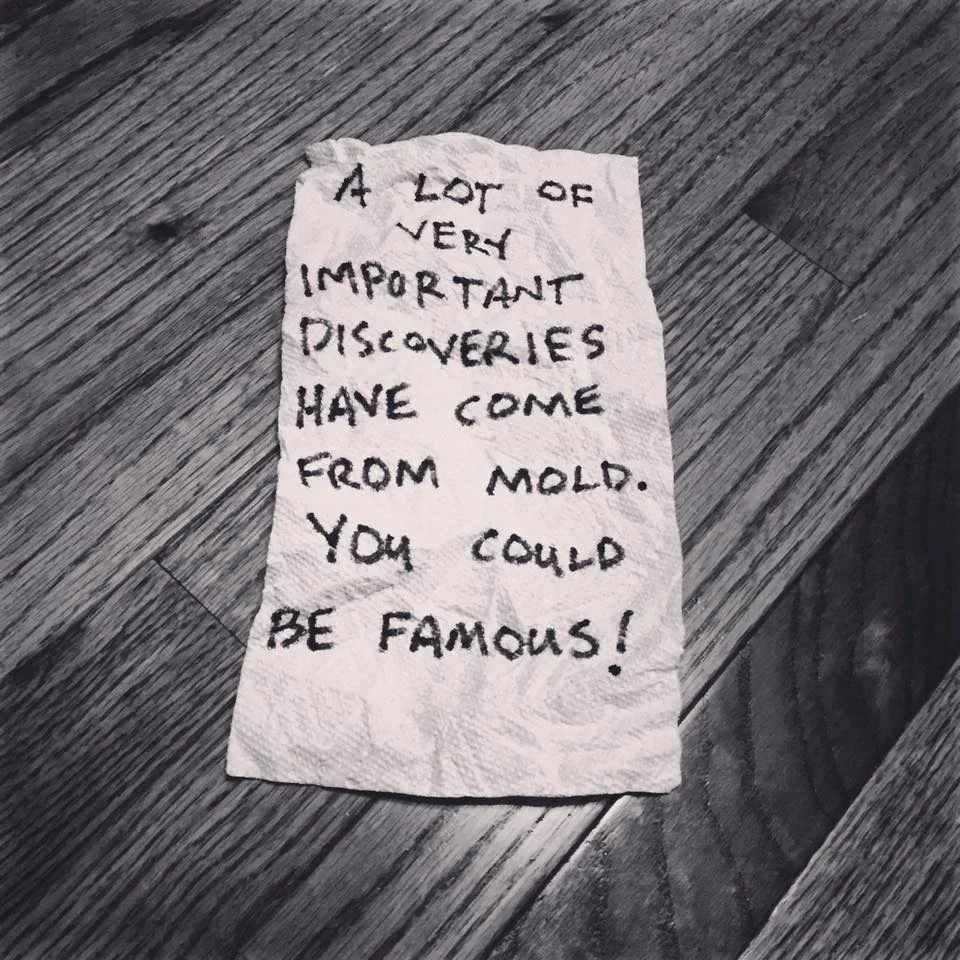 A LOT OF
VERY
IMPORTANT
DISCOVERIES
HAVE COME
FROM MOLD.
YOU COULD
BE FAMOUS!